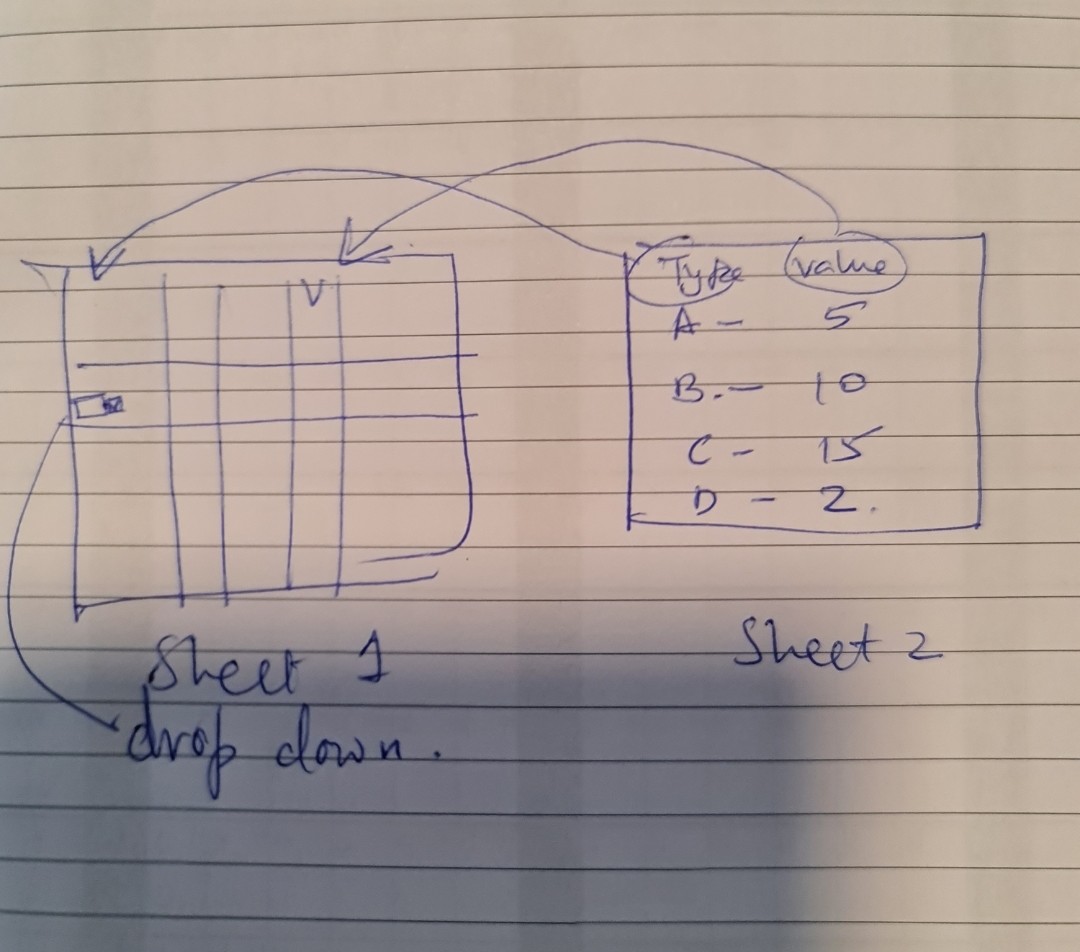 V
Type value
A - 5
B. - 10
C - 15
D - 2.
Sheet 1
Sheet 2
drop down.